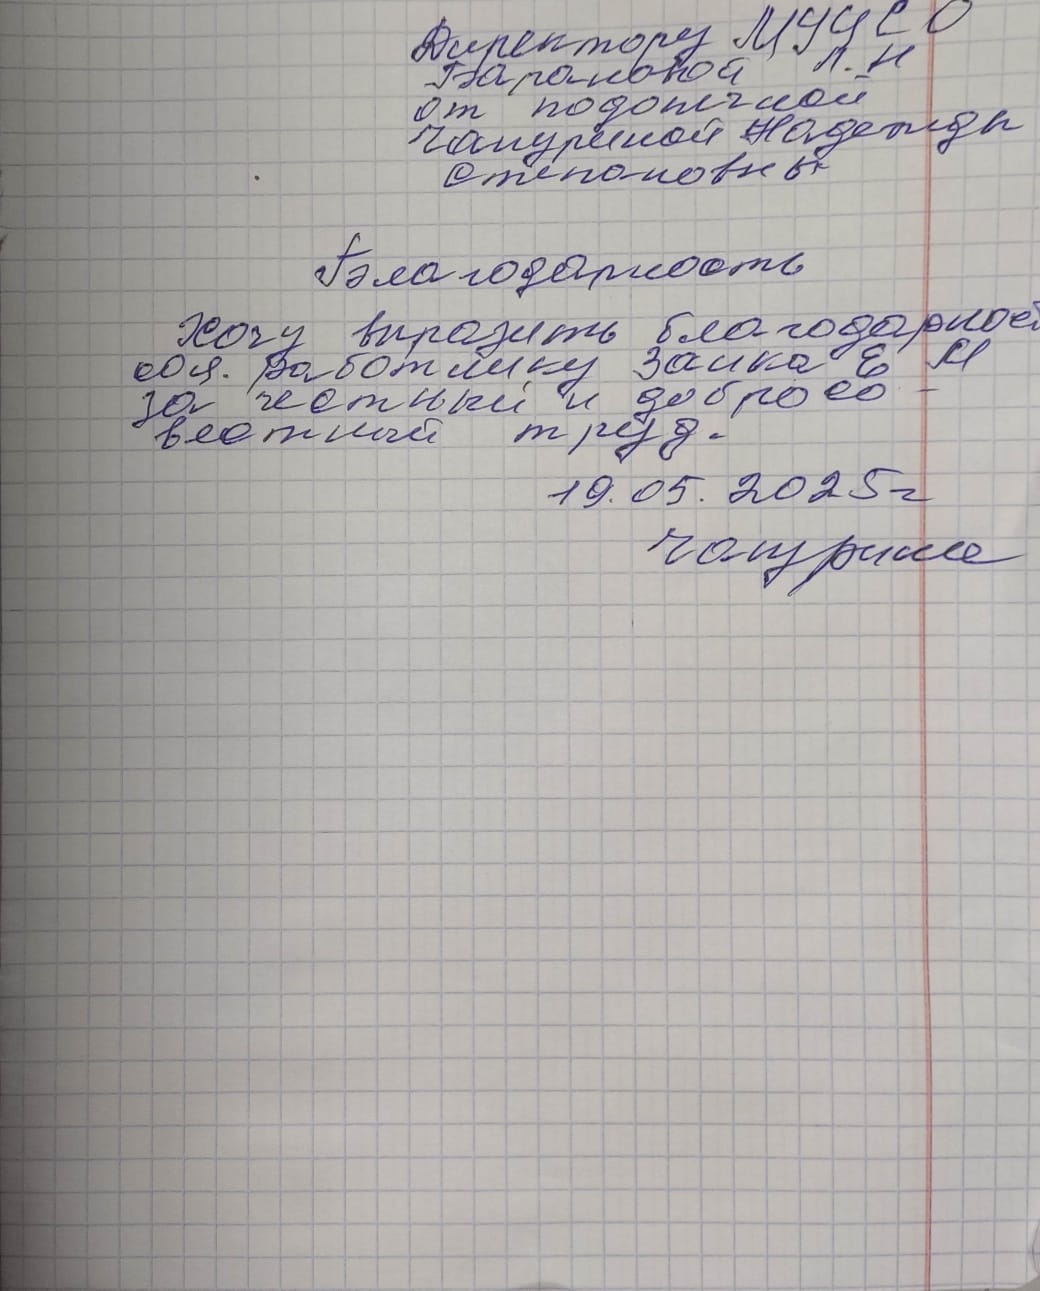 Директору МУЦСО
Барановой Л.Н
от подопечной
Чапуриной Надежды
Степановны
Благодарность
Хочу выразить благодарност
соц. работнику Заика Е М
за честный и добросо-
вестный труд.
19.05.2025г
Чапурина